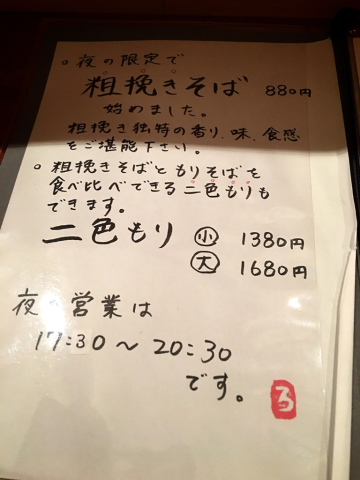 ○ 夜の限定で
粗挽きそば 880円
始めました。
粗挽き独特の香り、味、食感
をご堪能下さい。
○ 粗挽きそばともりそばを
食べ比べできる二色もりも
できます。
二色もり ㊀小 1380円
大 1680円
夜の営業は
17:30〜20:30
です。
ろ